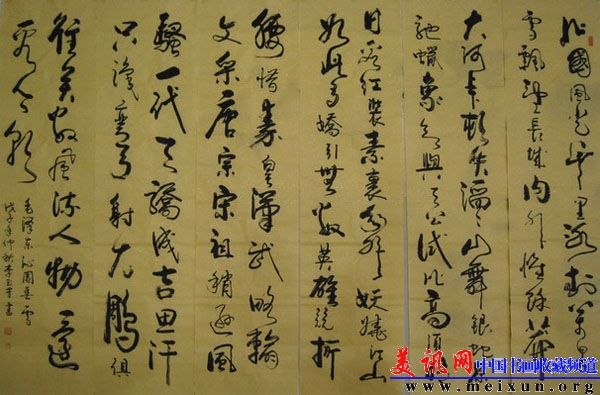 北國風光千里冰封萬里
雪飄望長城内外惟餘莽
大河上下頓失滔滔山舞銀蛇原
馳蠟象欲與天公試比高須晴
日看紅裝素裹分外妖嬈江山
如此多嬌引無數英雄競折
腰惜秦皇漢武略輸
文采唐宗宋祖稍遜風
騷一代天驕成吉思汗
只識彎弓射大鵰俱
往矣數風流人物還
看今朝
毛澤東沁園春雪
戊子年仲秋李玉書
美讯网 中国书画收藏频道
www.meixun.org